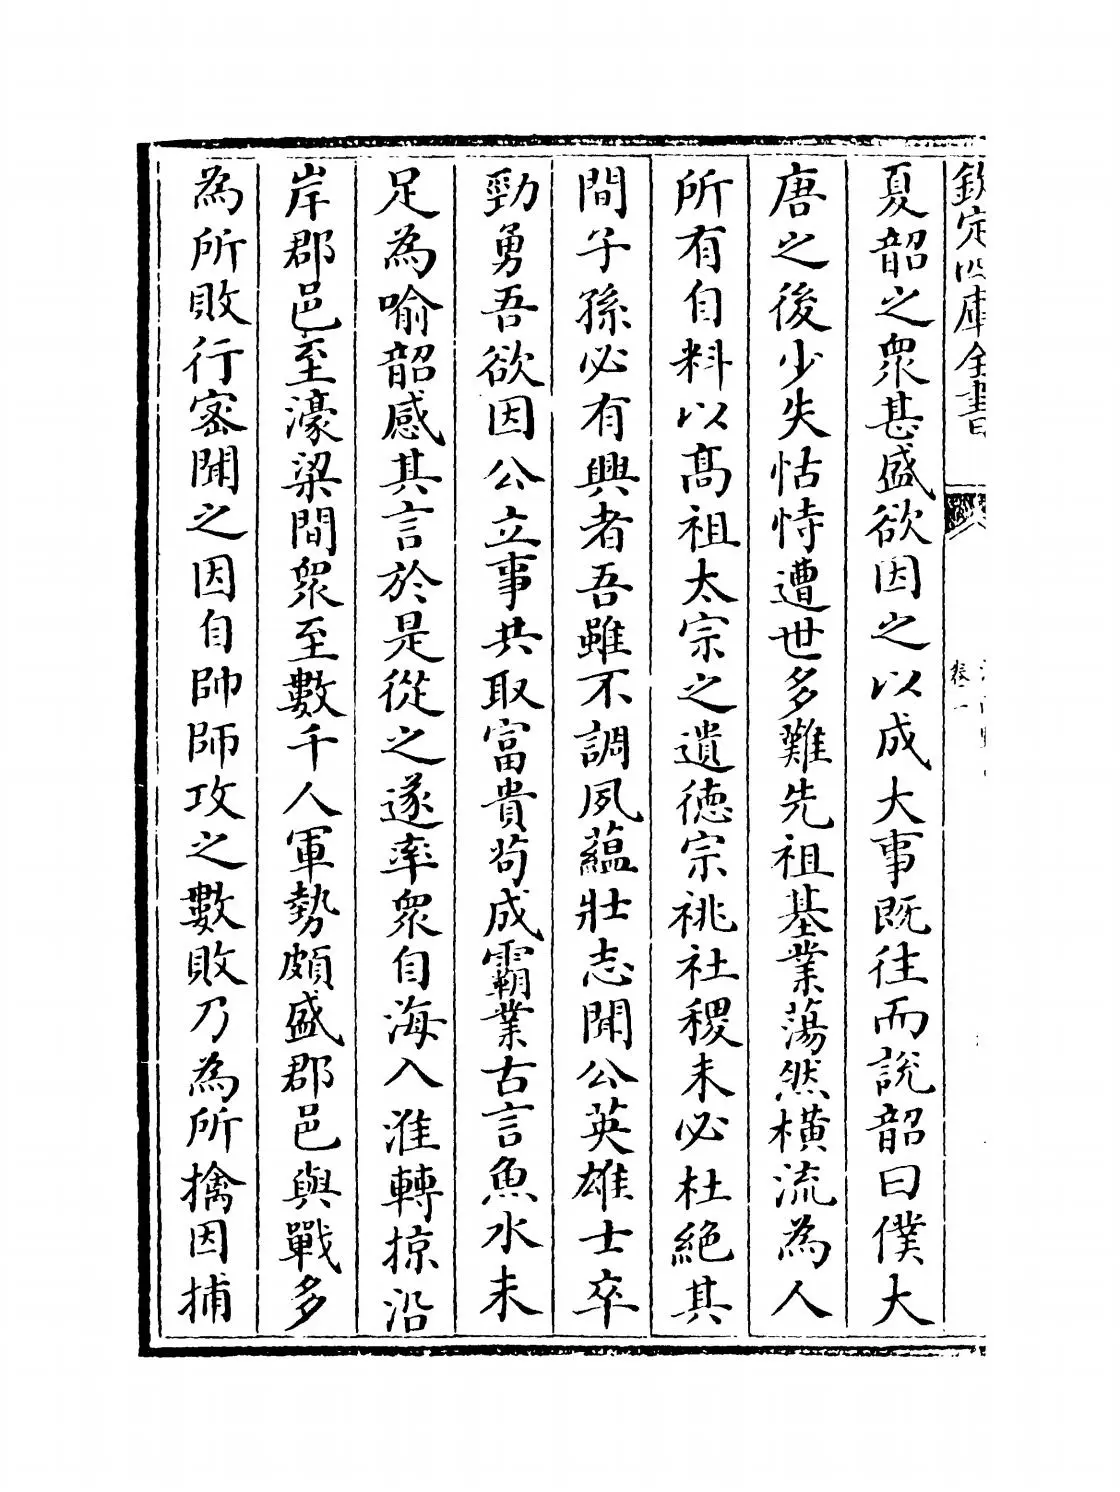 欽定四庫全書
卷一
夏韶之衆甚盛欲因之以成大事既往而說韶曰僕大
唐之後少失怙恃遭世多難先祖基業蕩然橫流為人
所有自料以髙祖太宗之遺徳宗祧社稷未必杜絶其
間子孫必有興者吾雖不調夙蘊壯志聞公英雄士卒
勁勇吾欲因公立事共取富貴茍成霸業古言魚水未
足為喻韶感其言於是從之遂率衆自海入淮轉掠沿
岸郡邑至濠梁間衆至數千人軍勢頗盛郡邑與戰多
為所敗行密聞之因自帥師攻之數敗乃為所擒因捕